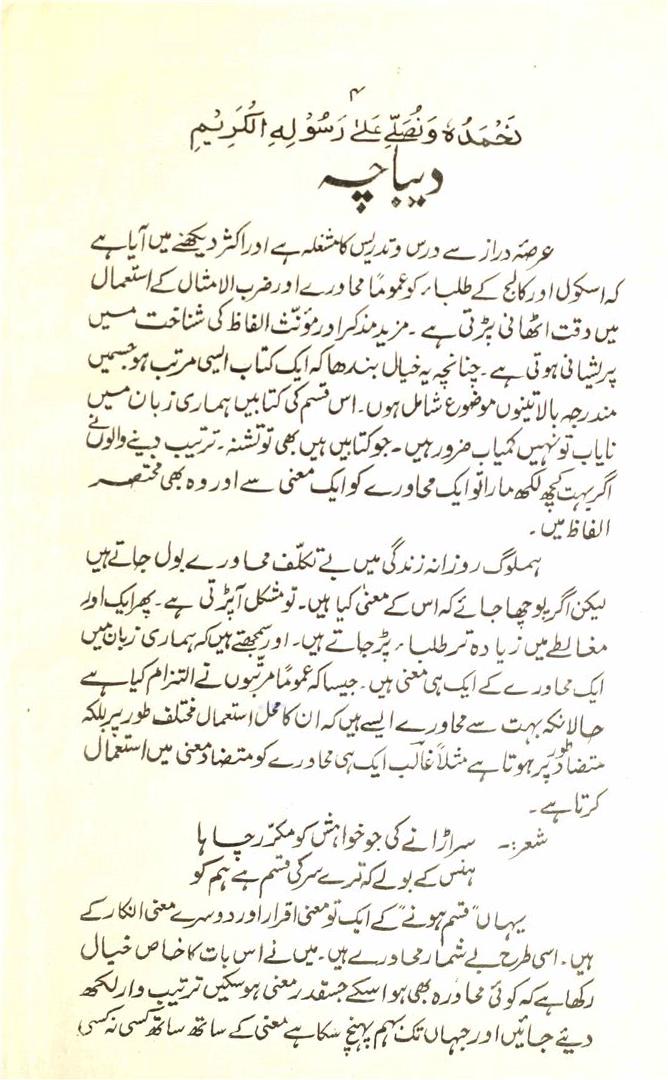 ۴
نَحْمَدُہٗ وَنُصَلِّے عَلٰے رَسُوْلِہِ الْکَرِیْمِ
دیباچہ
عرصۂ دراز سے درس و تدریس کا مشغلہ ہے اور اکثر دیکھنے میں آیا ہے
کہ اسکول اور کالج کے طلباء کو عموماً محاورے اور ضرب الامثال کے استعمال
میں دقت اٹھانی پڑتی ہے۔ مزید مذکر اور مؤنث الفاظ کی شناخت میں
پریشانی ہوتی ہے۔ چنانچہ یہ خیال بندھا کہ ایک کتاب ایسی مرتب ہو جسمیں
مندرجہ بالا تینوں موضوع شامل ہوں۔ اس قسم کی کتابیں ہماری زبان میں
نایاب تو نہیں کمیاب ضرور ہیں۔ جو کتابیں ہیں بھی تو تشنہ۔ ترتیب دینے والوں نے
اگر بہت کچھ لکھ مارا تو ایک محاورے کو ایک معنی سے اور وہ بھی مختصر
الفاظ میں۔
ہملوگ روزانہ زندگی میں بے تکلّف محاورے بول جاتے ہیں
لیکن اگر پوچھا جائے کہ اس کے معنیٰ کیا ہیں۔ تو مشکل آپڑتی ہے۔ پھر ایک اور
مغالطے میں زیادہ تر طلباء پڑ جاتے ہیں۔ اور سمجھتے ہیں کہ ہماری زبان میں
ایک محاورے کے ایک ہی معنی ہیں۔ جیسا کہ عموماً مرتّبوں نے التزام کیا ہے
حالانکہ بہت سے محاورے ایسے ہیں کہ ان کا محل استعمال مختلف طور پر بلکہ
متضاد طور پر ہوتا ہے مثلاً غالبؔ ایک ہی محاورے کو متضاد معنی میں استعمال
کرتا ہے۔
شعر:۔ سر اڑانے کی جو خواہش کو مکرّر چاہا
ہنس کے بولے کہ ترے سر کی قسم ہے ہم کو
یہاں "قسم ہونے" کے ایک تو معنی اقرار اور دوسرے معنی انکار کے
ہیں۔ اسی طرح بے شمار محاورے ہیں۔ میں نے اس بات کا خاص خیال
رکھا ہے کہ کوئی محاورہ بھی ہو اسکے جسقدر معنی ہو سکیں ترتیب وار لکھ
دیئے جائیں اور جہاں تک بہم پہنچ سکا ہے معنی کے ساتھ ساتھ کسی نہ کسی